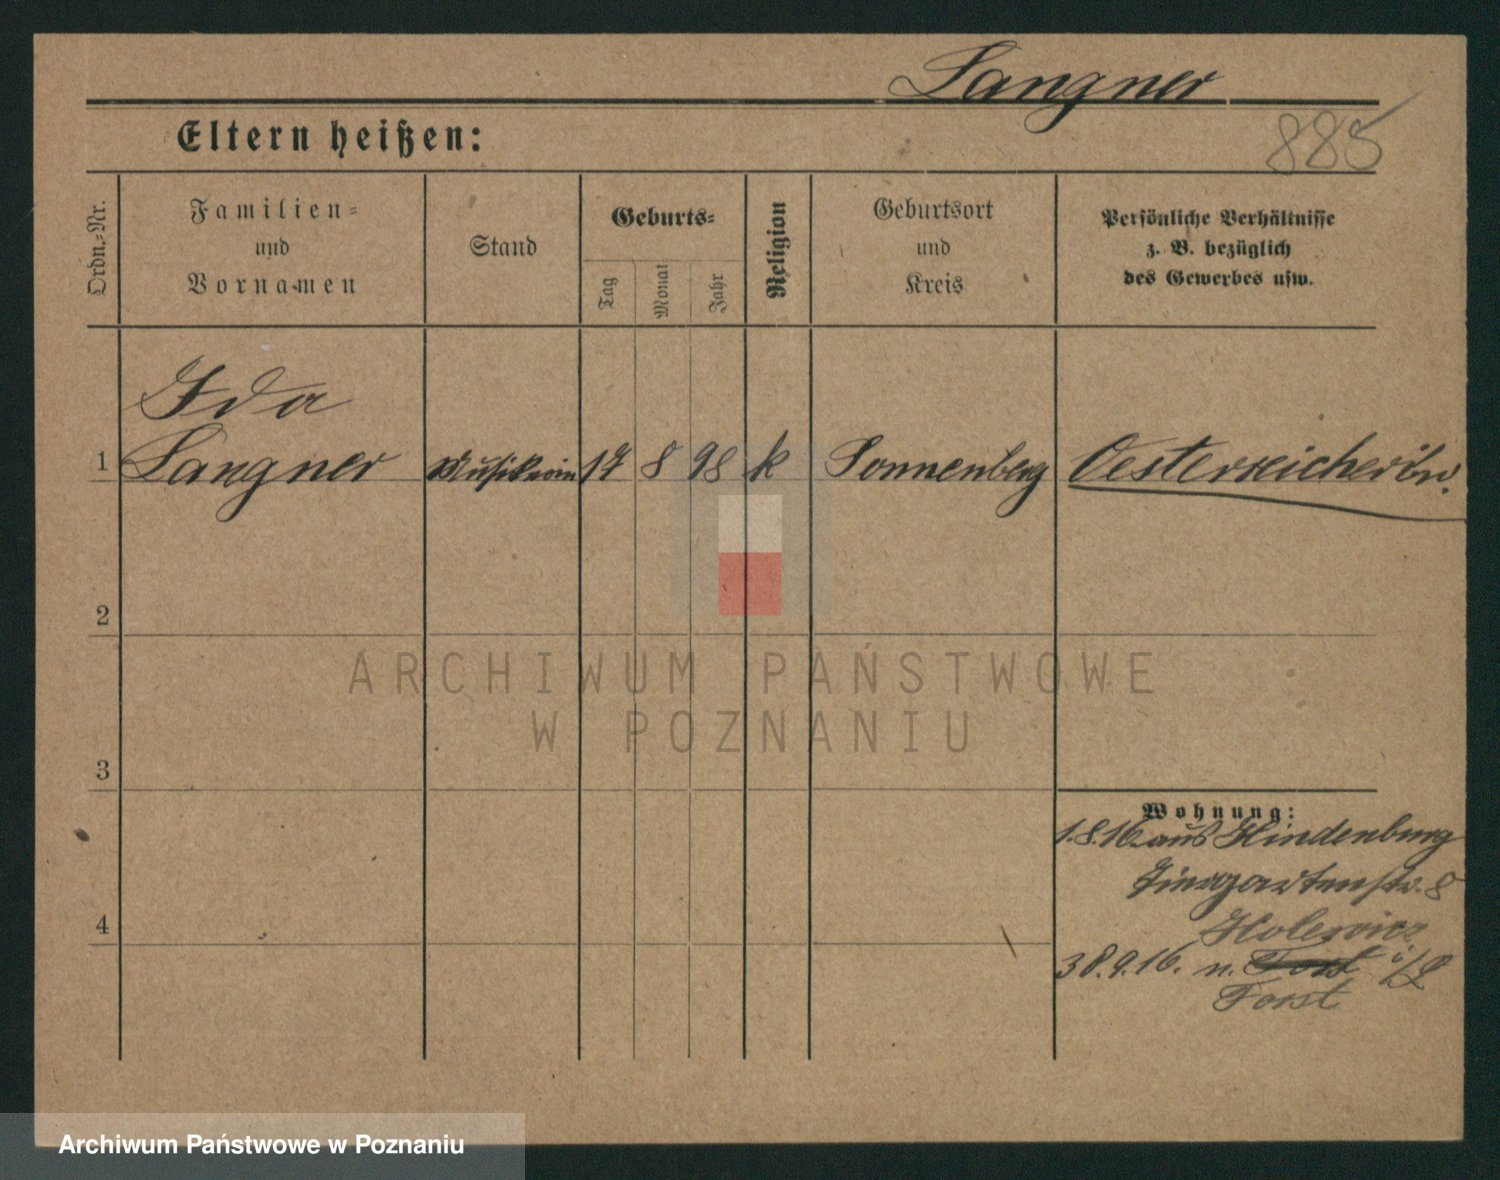 Langner
885
Eltern heißen:
Ordn.-Nr.
Familien-
und
Vornamen
Stand
Geburts-
Tag
Monat
Jahr
Religion
Geburtsort
und
Kreis
Persönliche Verhältnisse
z. B. bezüglich
des Gewerbes usw.
Ida
1 Langner 17 8 98 k Sonnenberg Oesterreicherin.
2
ARCHIWUM PAŃSTWOWE
W POZNANIU
3
Wohnung:
1.8.16 aus Hindenburg
Tiergartenstr. 8
4
n. Forst i/L
Forst
Archiwum Państwowe w Poznaniu